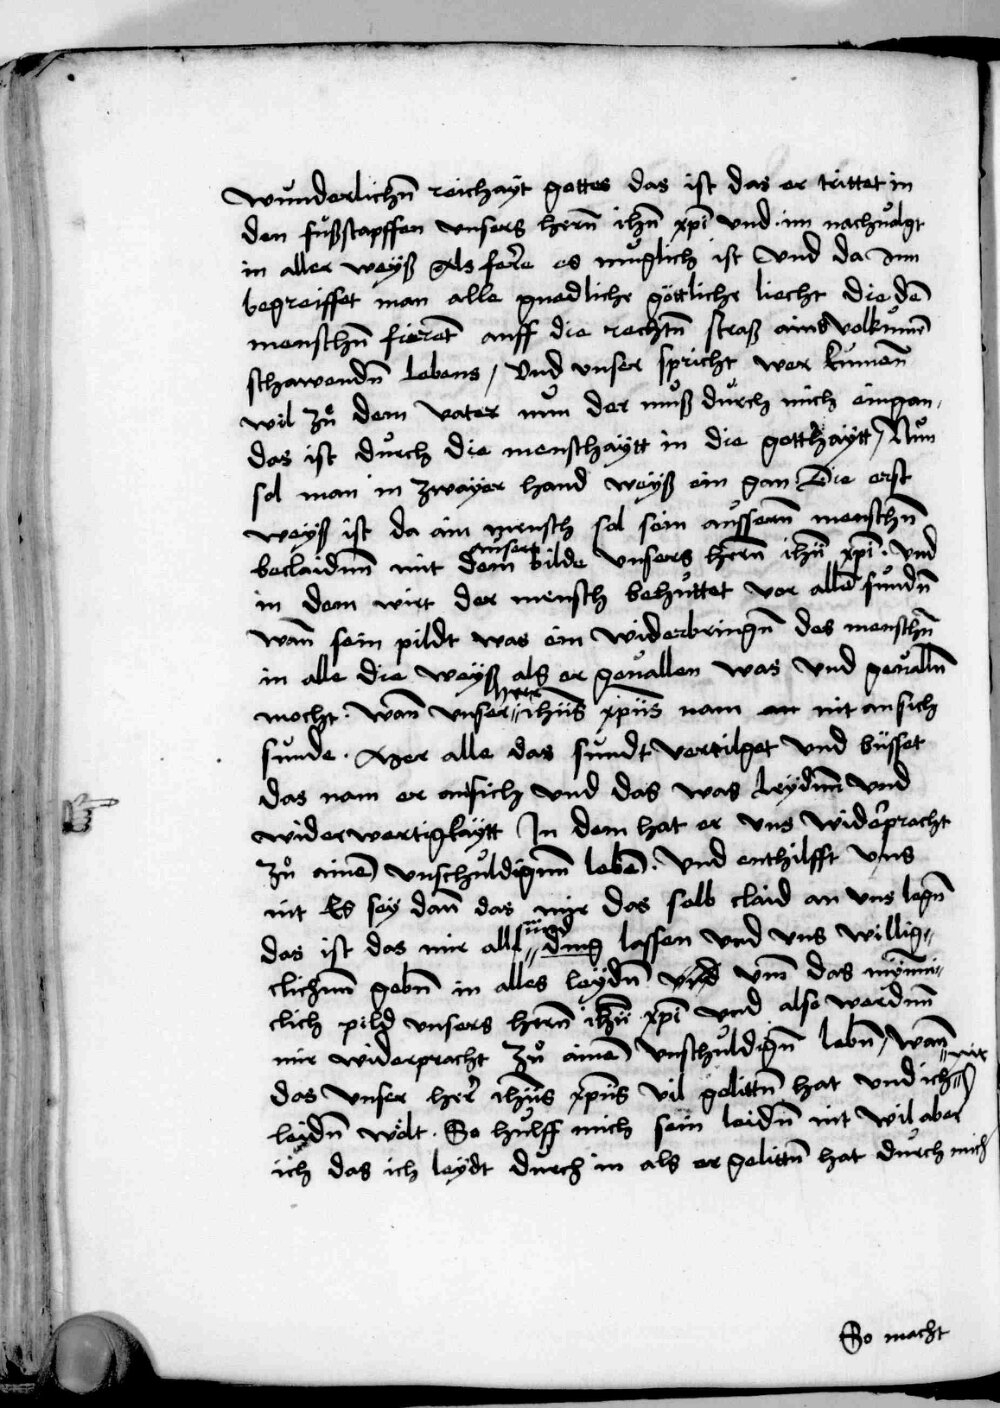 wunderlichn̄ reichayt gottes das ist das er trittet in
den fußstapffen unsers hern̄ ihū xpi und im nachuolgt
in aller weyß Als fer̄e es muglich ist Und da Inn
begreiffet man alle gnedliche göttliche liecht die dē
menschn̄ fierēt auff die rechtn̄ straß ains volkumē
schawendn̄ lebens / Und unser spricht wer kumen̄
wil zů dem vater nun der muß durch mich eingan
das ist durch die menschaytt in die gotthaytt / Nun
sol man in zwayer hand weyß ein gan Die erst
weyß ist da ain mensch sol sein aussern̄ menschn̄
beclaidnn̄ mit dem bilde unsers hern̄ ihū xpi · Und
in dem wirt der mensch behuttet vor allē sundn̄
wan̄ sein pildt was ein widerbringn̄ des menschn̄
in alle die weyß als er geuallen was Und geualln̄
mocht · Wan̄ unser herr ihūs xp̄us nam an nit an sich
sunde · Aber alle das sundt vertilget Und büsset
das nam er ansich Und das was leydnn̄ Und
widerwertigkaytt In dem hat er uns widerpracht
Zů ainē unschuldignn̄ lebē · Und enthilfft uns
nit Es sey dan̄ das mir das selb claid an uns legn̄
das ist das mir all sund ding lassen und uns willig
clichnn̄ gebn̄ in alles leydn̄ und um̄ das mynni
clich pild unsers hern̄ ihū xpi und also werdnn̄
mir widerpracht Zů ainē unschuldign̄ lebn̄ / Wan̄
das unser her̄ ihūs xp̄us vil gelittn̄ hat und ich nit
leidn̄ wölt · So hulff mich sein leidn̄ nit wil aber
ich das ich leydt durch in als er gelittn̄ hat durch mich
So macht